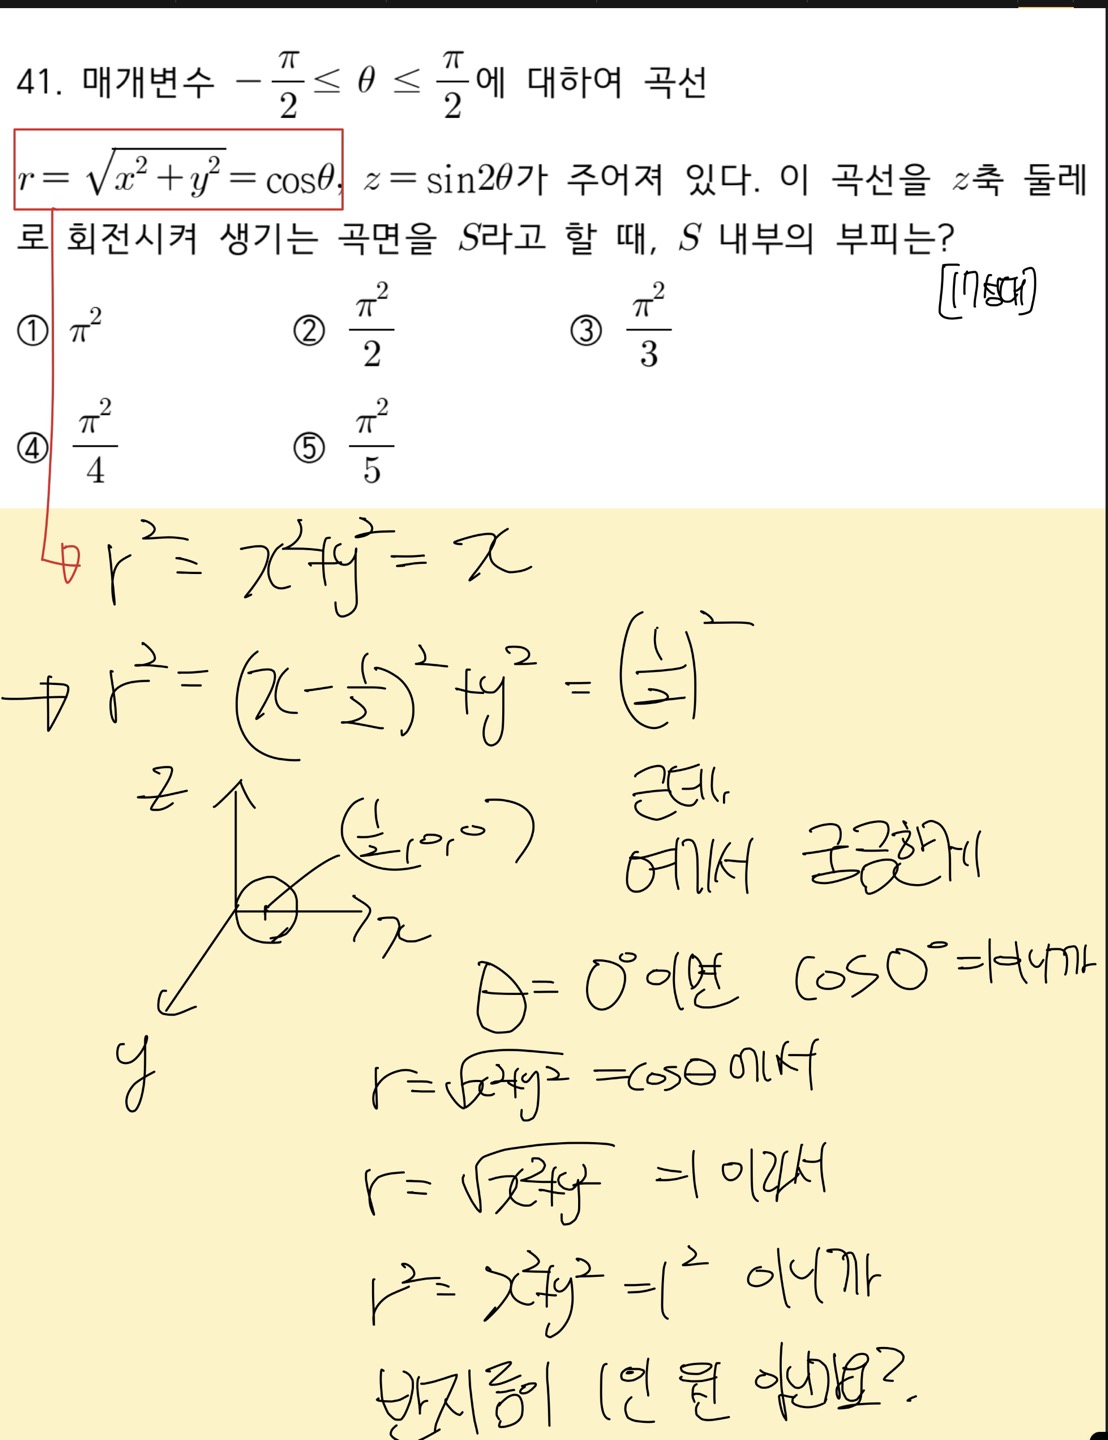 41. 매개변수 $-\frac{\pi}{2} \leq \theta \leq \frac{\pi}{2}$에 대하여 곡선
$r = \sqrt{x^2+y^2} = \cos\theta$, $z = \sin2\theta$가 주어져 있다. 이 곡선을 $z$축 둘레
로 회전시켜 생기는 곡면을 $S$라고 할 때, $S$ 내부의 부피는?
① $\pi^2$ ② $\frac{\pi^2}{2}$ ③ $\frac{\pi^2}{3}$
④ $\frac{\pi^2}{4}$ ⑤ $\frac{\pi^2}{5}$
$r^2 = x^2+y^2 = x$
→ $r^2 = (x-\frac{1}{2})^2+y^2 = (\frac{1}{2})^2$
z
$(\frac{1}{2},0,0)$
x
y
근데,
여기서 궁금한게
θ= 0°이면 cos0°=1이니까
$r=\sqrt{x^2+y^2}=\cos\theta$ 에서
$r=\sqrt{x^2+y^2}=1$ 이라서
$r^2=x^2+y^2=1^2$ 이니까
반지름이 1인 원 아닌가요?